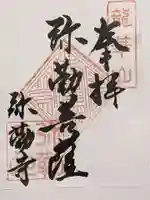 奉拝
弥勒菩薩
弥勒寺